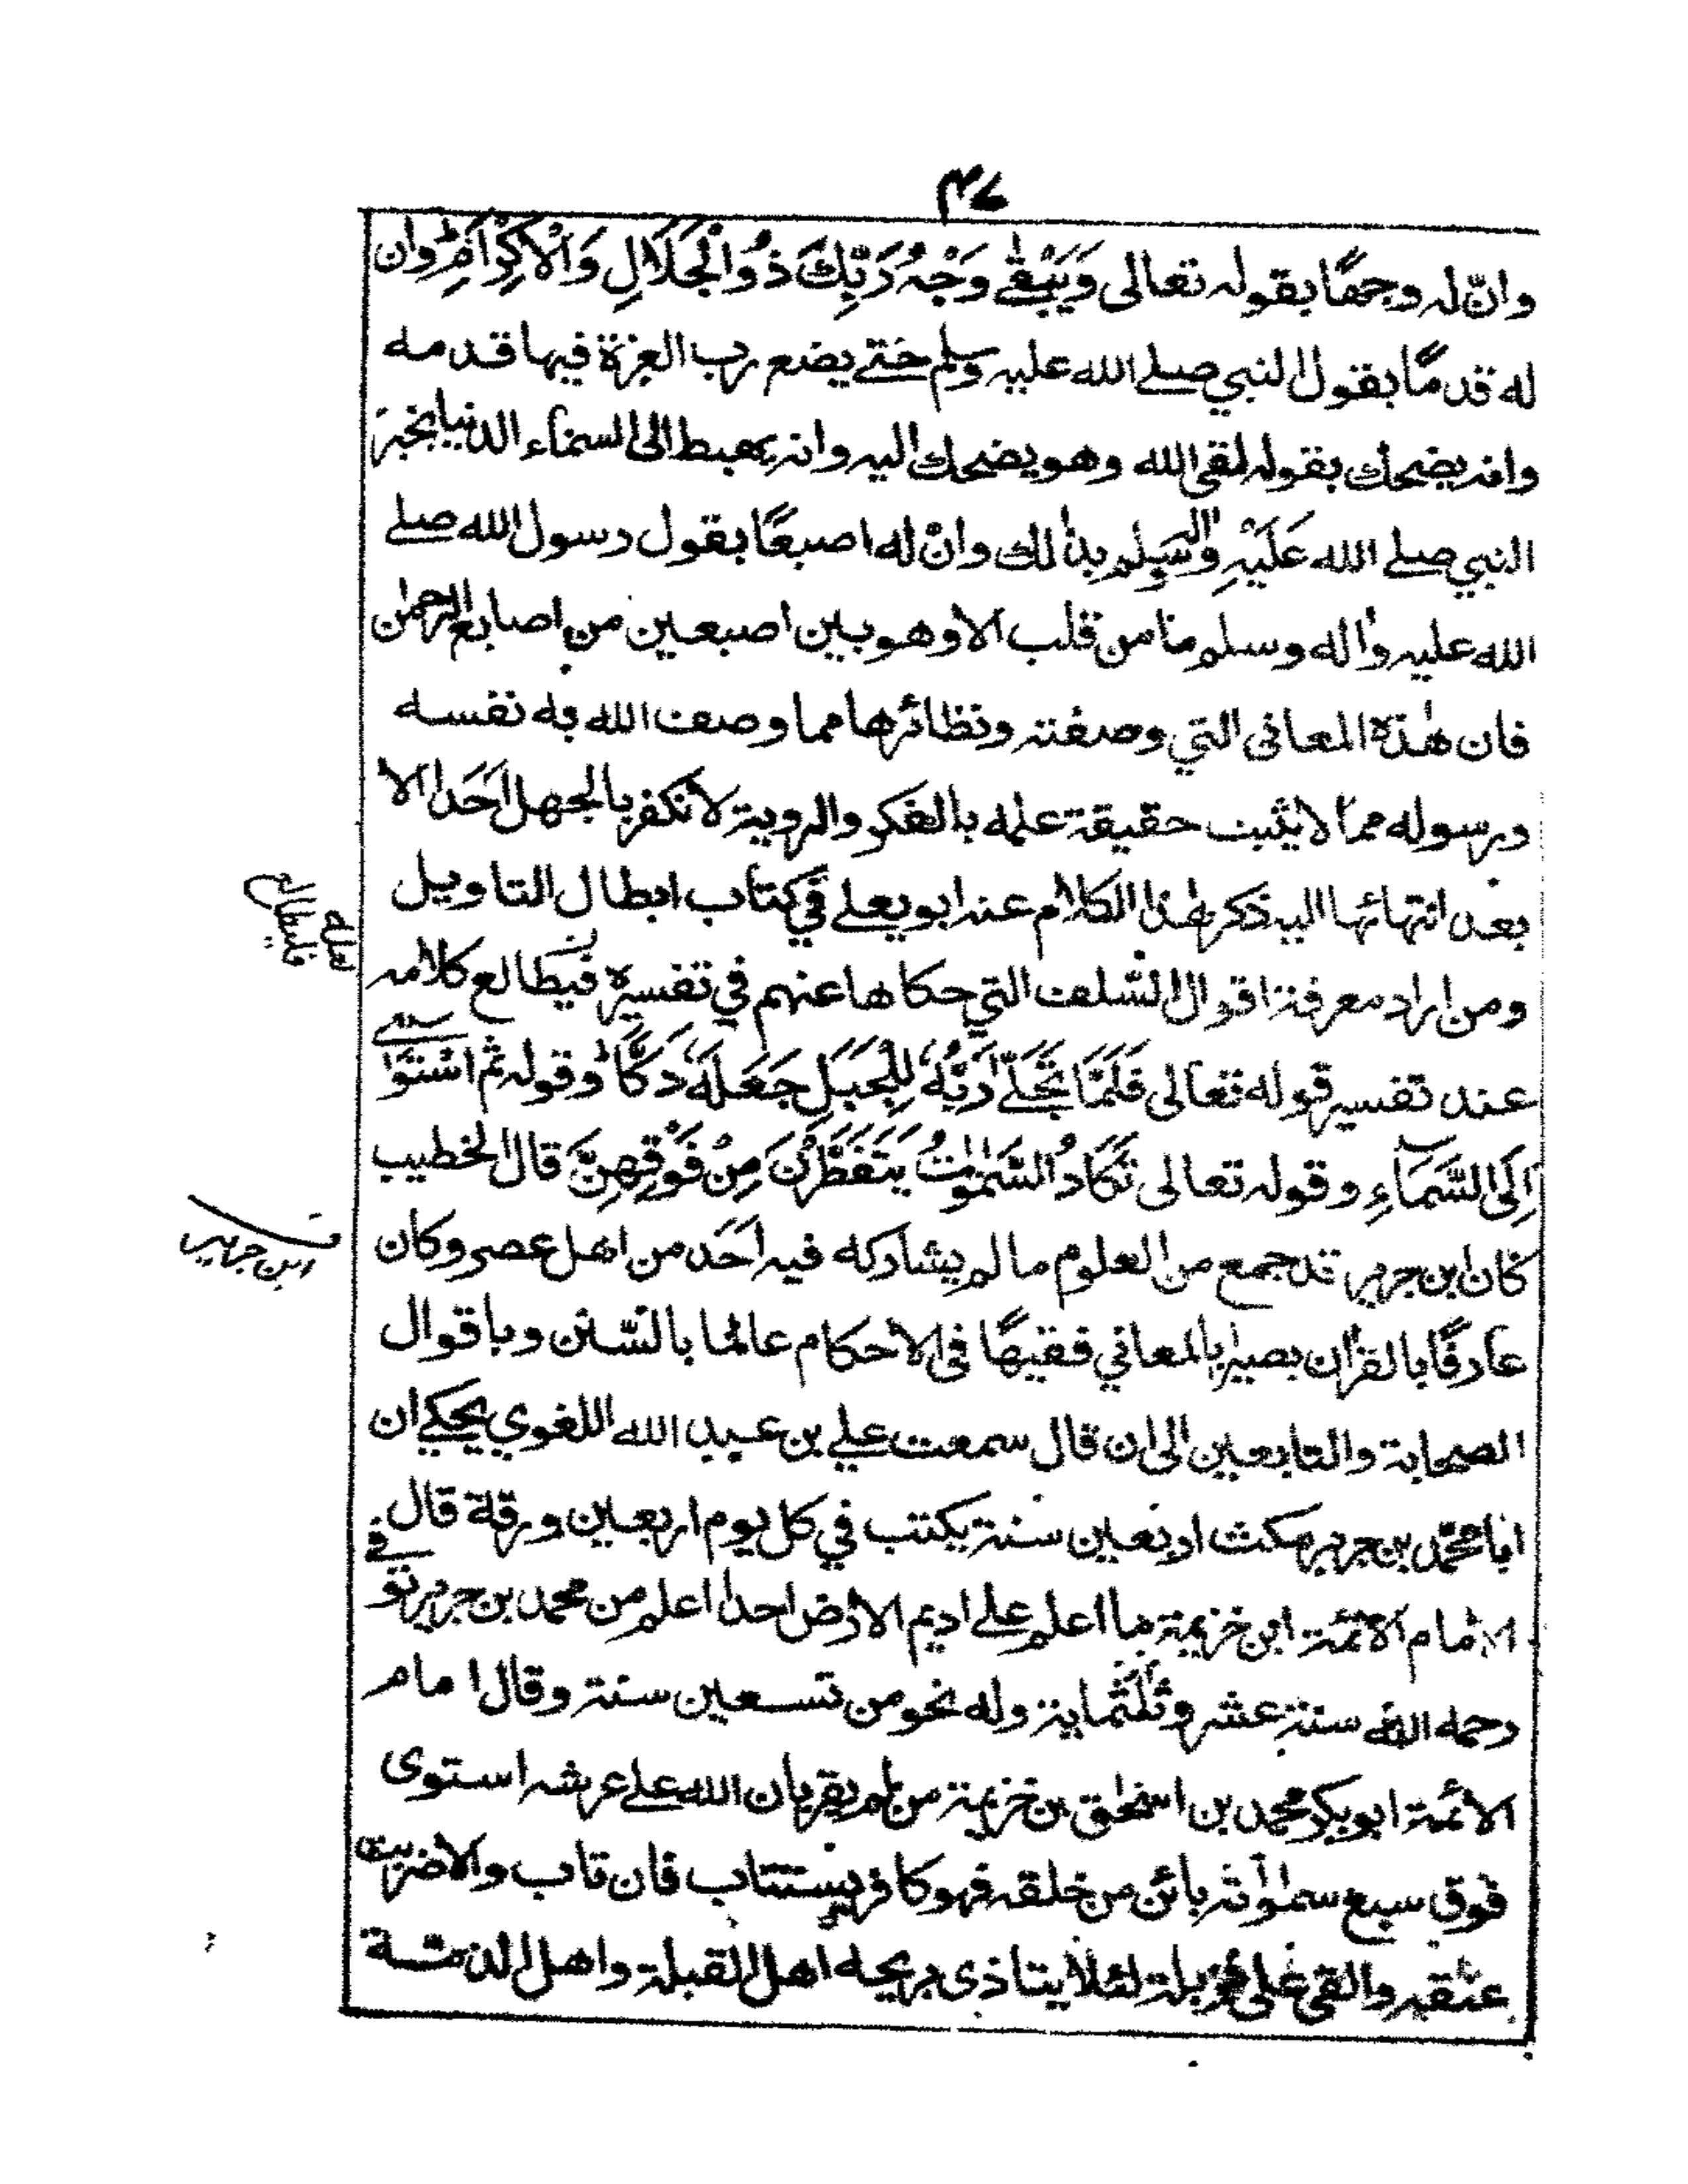 ٤٧
وانّ له وجهًا بقوله تعالى وَيَبْقٰى وَجْهُ رَبِّكَ ذُو الْجَلَالِ وَالْاِكْرَامِ وان
له قدمًا بقول النبي صلى الله عليه وسلم حتى يضع رب العزة فيها قدمه
وانه يضحك بقوله لقى الله وهو يضحك اليه وانه يهبط الى السماء الدنيا بخبر
النبي صلى الله عَلَيْهِ واله وسلم بذالك وانّ له اصبعًا بقول رسول الله صلى
الله عليه واله وسلم ما من قلب الا وهو بين اصبعين من اصابع الرحمٰن
فان هٰذه المعانى التي وصفته ونظائرها مما وصف الله به نفسه
ورسوله مما لا يثبت حقيقة علمه بالفكر والروية لا نكفر بالجهل اَحَدا الا
بعد انتهائها اليه ذكر هٰذا الكلام عنه ابو يعلى في كتاب ابطال التاويل
ومن اراد معرفة اقوال السّلف التي حكاها عنهم في تفسيره فيطالع كلامه
عند تفسير قوله تعالى فَلَمَّا تَجَلّٰى رَبُّهٗ لِلْجَبَلِ جَعَلَهٗ دَكًّا وقوله ثم اسْتَوٰى
اِلَى السَّمَآءِ وقوله تعالى تَكَادُ السَّمٰوٰتُ يَتَفَطَّرْنَ مِنْ فَوْقِهِنَّ قال الخطيب
كان ابن جرير قد جمع من العلوم ما لم يشاركه فيه اَحَد من اهل عصره وكان
عارفًا بالقرٰان بصيرا بالمعاني فقيهًا فى الاحكام عالما بالسّنن وباقوال
الصحابة والتابعين الى ان قال سمعت علي بن عبيد الله اللغوي يحكى ان
ابا محمّد بن جرير مكث اربعين سنة يكتب في كل يوم اربعين ورقة قال
الامام الائمة ابن خزيمة ما اعلم على اديم الارض احدا اعلم من محمد بن جرير توفى
رحمه الله سنة عشر وثلٰثماية وله نحو من تسعين سنة وقال امام
الائمة ابو بكر محمد بن اسحٰق بن خزيمة من لم يقر بان الله على عرشه استوى
فوق سبع سمٰوٰته بائن من خلقه فهو كافر يستتاب فان تاب والا ضربت
عنقه والقى على مزبلة لئلا يتاذى بريحه اهل القبلة واهل الذمة
ابن جرير